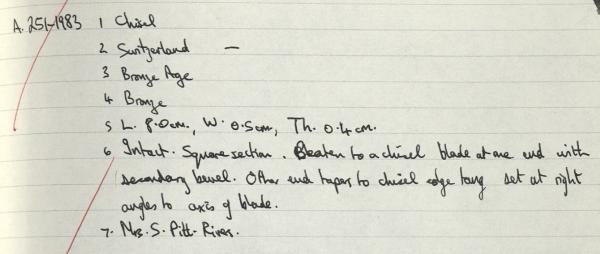 A. 251-1983 1 Chisel
2 Switzerland —
3 Bronze Age
4 Bronze
5 L. 8.0cm., W. 0.5cm, Th. 0.4cm.
6 Intact. Square section. Beaten to a chisel blade at one end with
secondary bevel. Other end tapers to chisel edge tang set at right
angles to axis of blade.
7. Mrs. S. Pitt-Rivers.